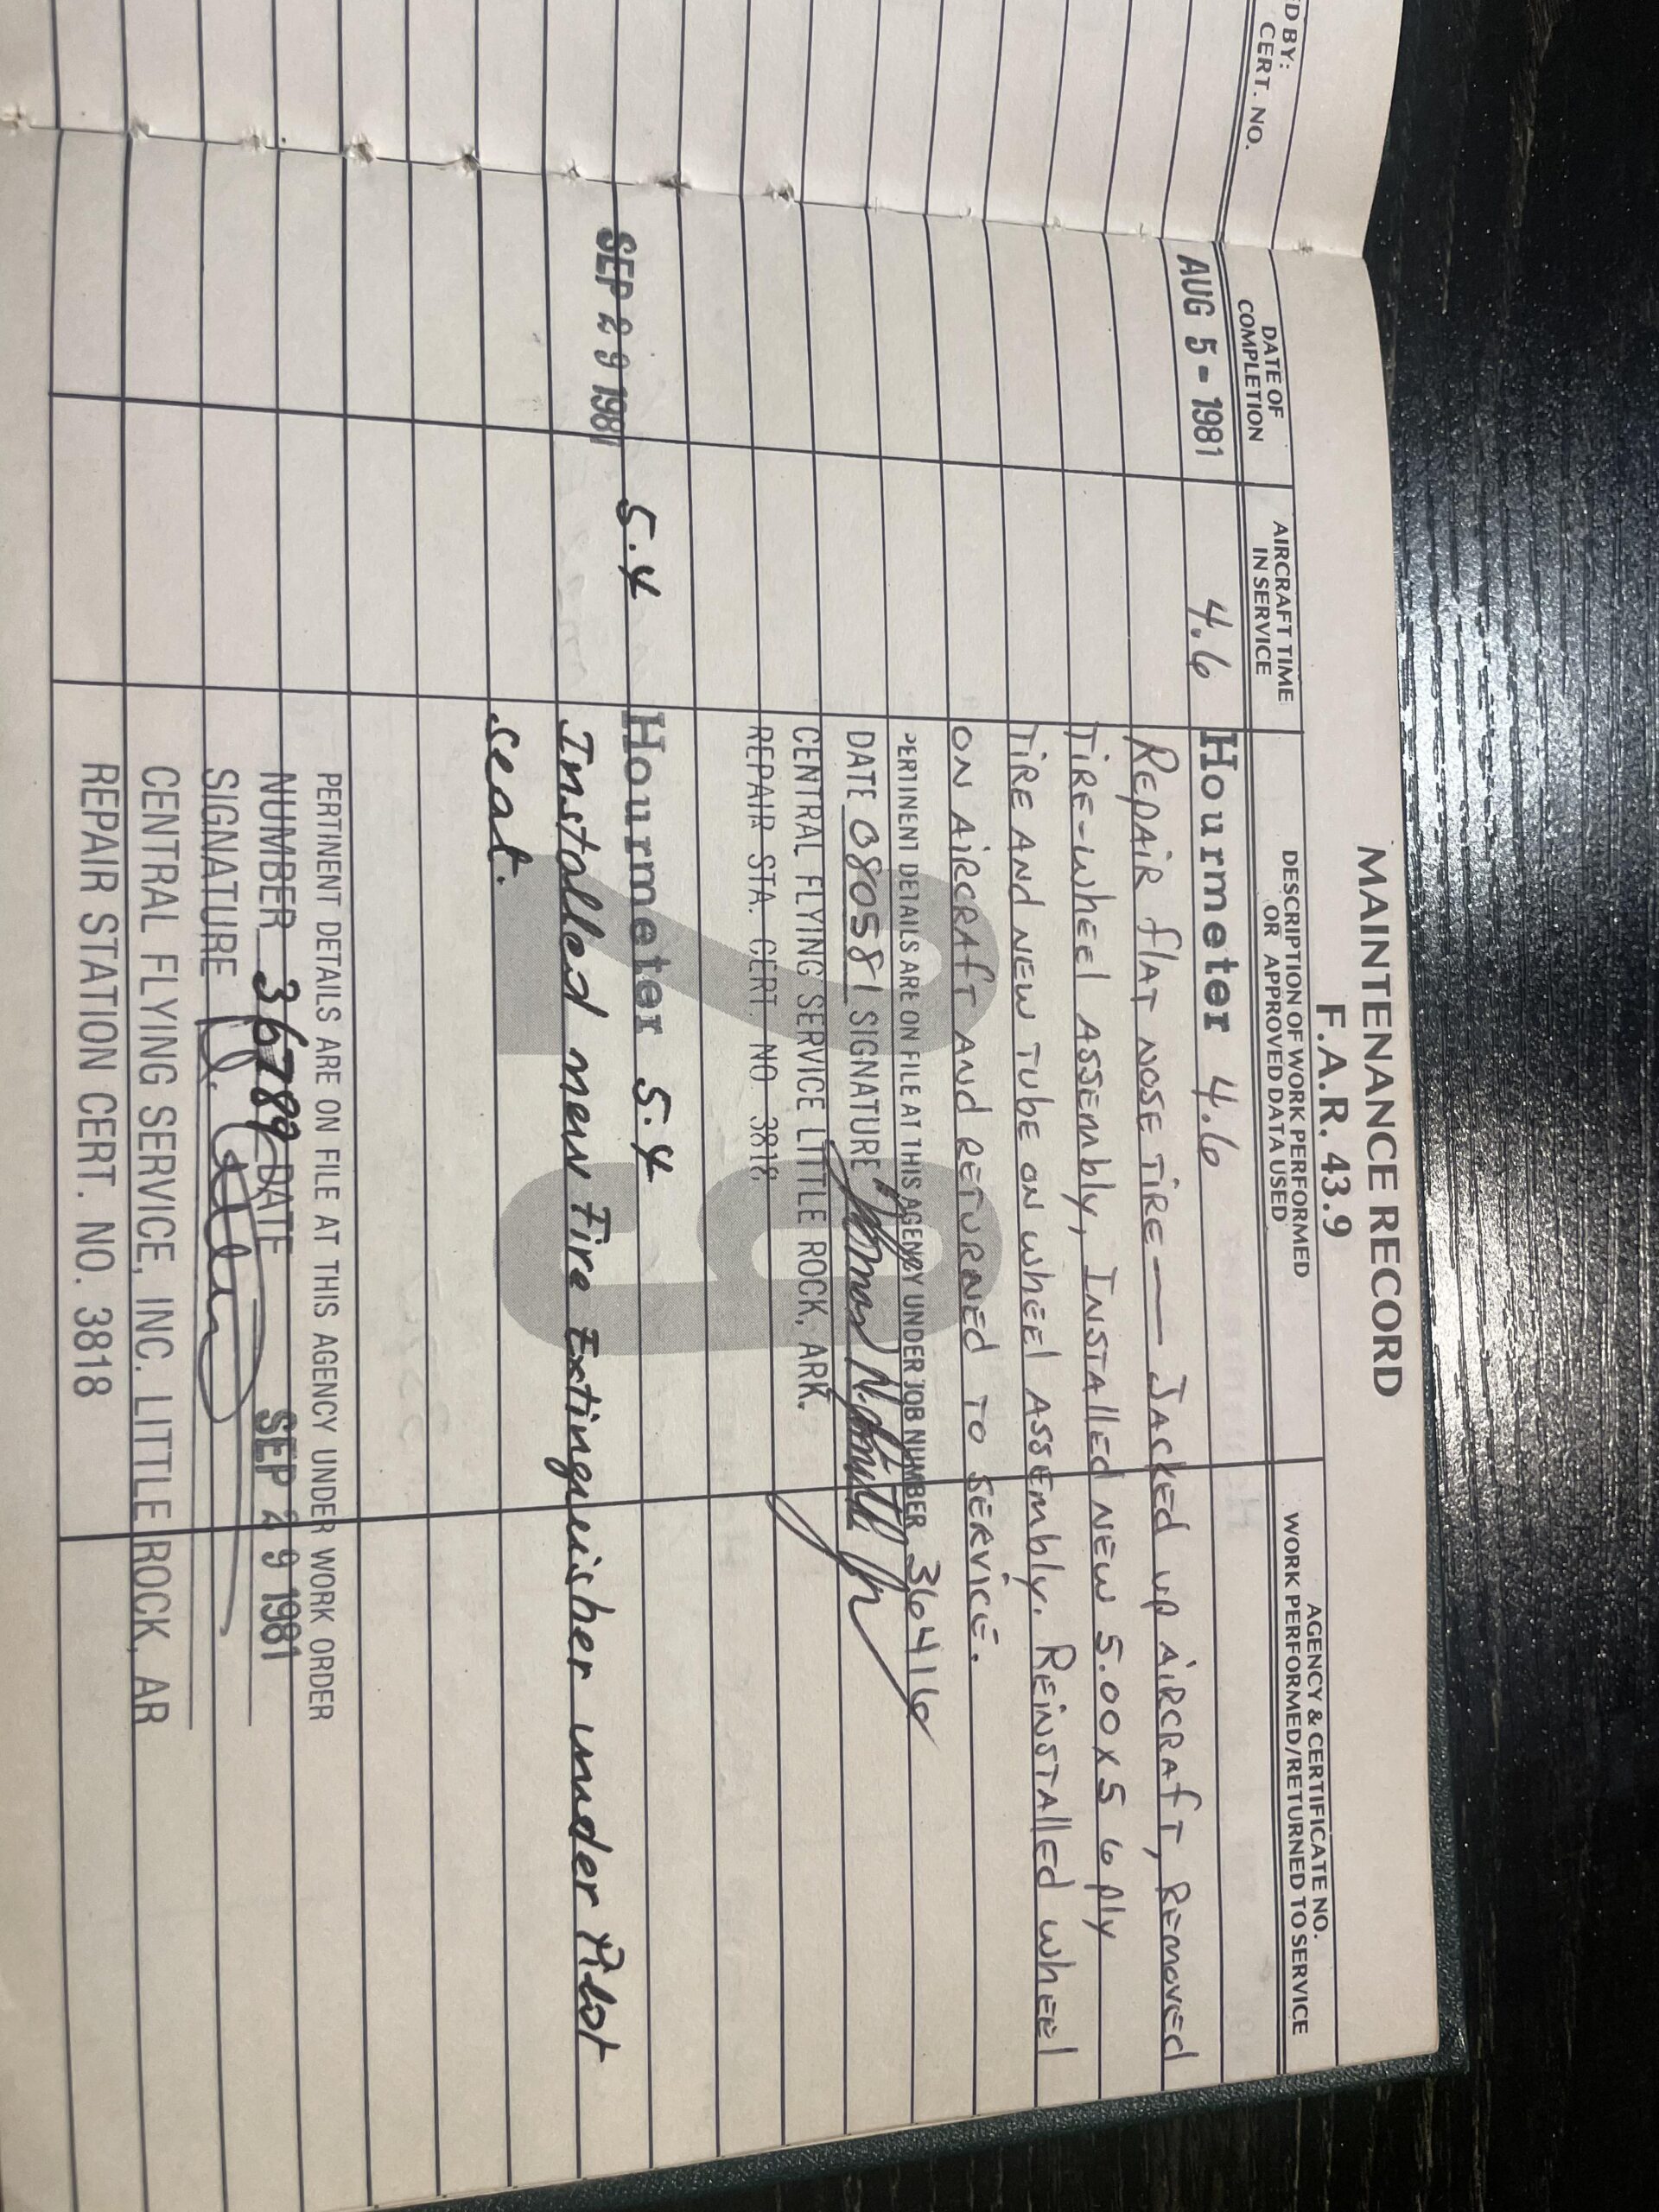 D BY:
CERT. NO.
MAINTENANCE RECORD
F.A.R. 43.9
DATE OF
COMPLETION
AIRCRAFT TIME
IN SERVICE
DESCRIPTION OF WORK PERFORMED
OR APPROVED DATA USED
AGENCY & CERTIFICATE NO.
WORK PERFORMED/RETURNED TO SERVICE
AUG 5 - 1981 4.6 Hourmeter 4.6
REPAIR FLAT NOSE TIRE — JACKED UP AIRCRAFT, REMOVED
TIRE-WHEEL ASSEMBLY, INSTALLED NEW 5.00X5 6 PLY
TIRE AND NEW TUBE ON WHEEL ASSEMBLY. REINSTALLED WHEEL
ON AIRCRAFT AND RETURNED TO SERVICE.
PERTINENT DETAILS ARE ON FILE AT THIS AGENCY UNDER JOB NUMBER 36416
DATE 080581 SIGNATURE
CENTRAL FLYING SERVICE LITTLE ROCK, ARK.
REPAIR STA. CERT. NO. 3818
SEP 29 1981 5.4 Hourmeter 5.4
Installed new Fire Extinguisher under Pilot
seat.
PERTINENT DETAILS ARE ON FILE AT THIS AGENCY UNDER WORK ORDER
NUMBER 36789 DATE SEP 29 1981
SIGNATURE
CENTRAL FLYING SERVICE, INC. LITTLE ROCK, AR
REPAIR STATION CERT. NO. 3818